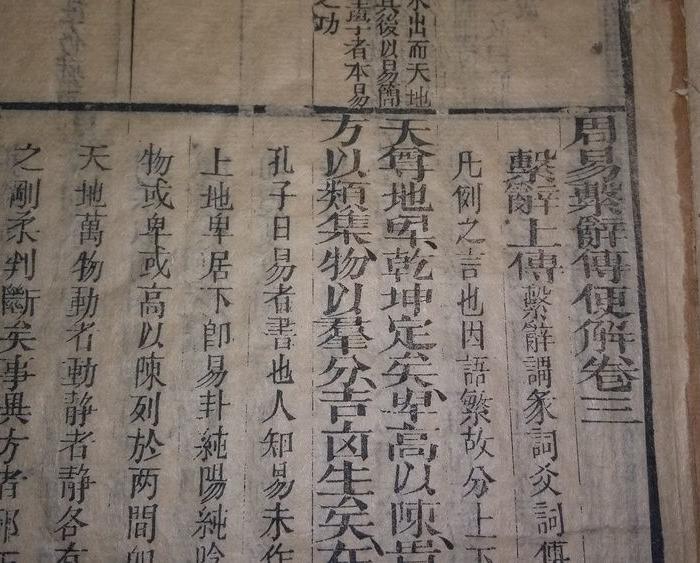 水出而天地
其後以易簡
學者本易
之功
周易繫辭傳便解卷三
繫辭上傳繫辭謂彖詞爻詞傳
凡例之言也因語繁故分上下
天尊地卑乾坤定矣卑高以陳貴
方以類集物以羣分吉凶生矣在
孔子曰易者書也人知易未作
上地卑居下卽易卦純陽純
物或卑或高以陳列於两間卽
天地萬物動者動靜者靜各有
之剛柔判斷矣事與方者